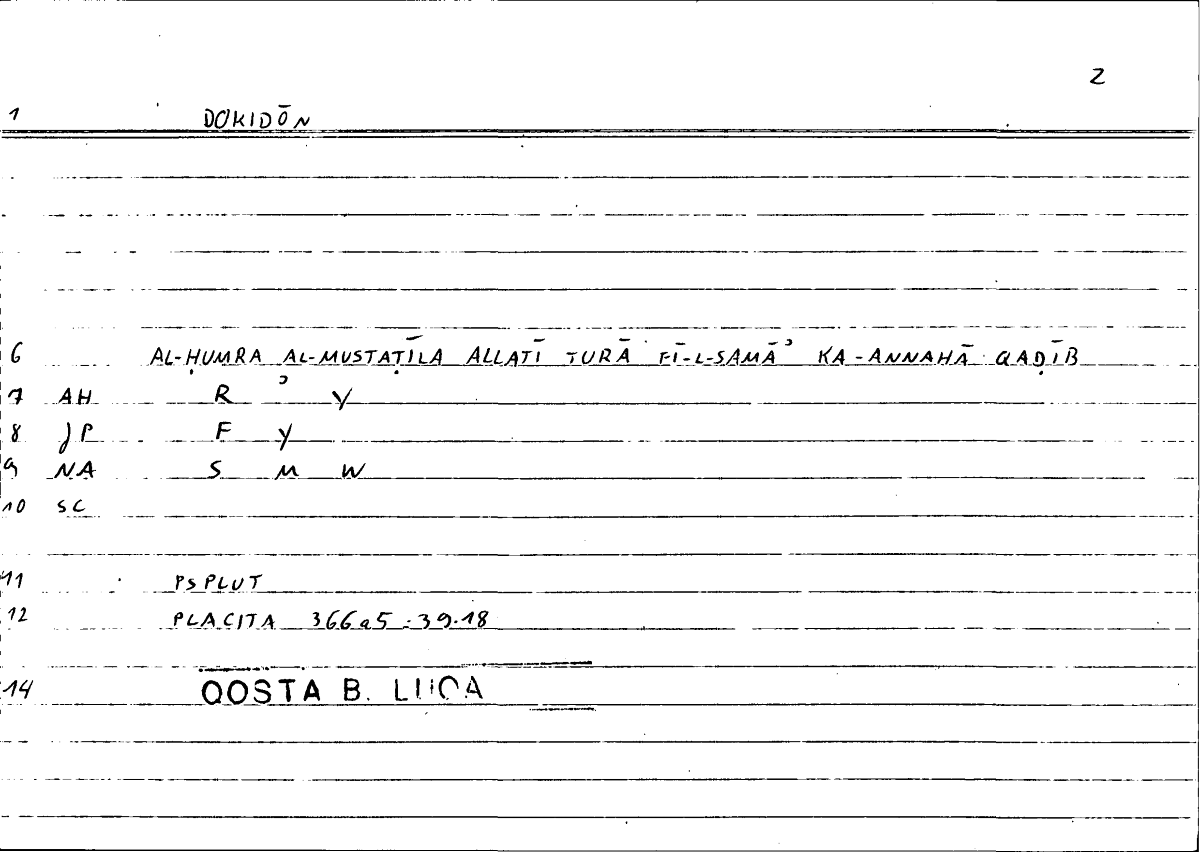 2
1 DOKIDŌN
6 AL-ḤUMRA AL-MUSTAṬĪLA ALLATĪ TURĀ FĪ-L-SAMĀʾ KA-ANNAHĀ QAḌĪB
7 AH R ʾ Y
8 JP F Y
9 NA S M W
10 SC
11 PSPLUT
12 PLACITA 366a5 : 39.18
14 QOSTA B. LUCA